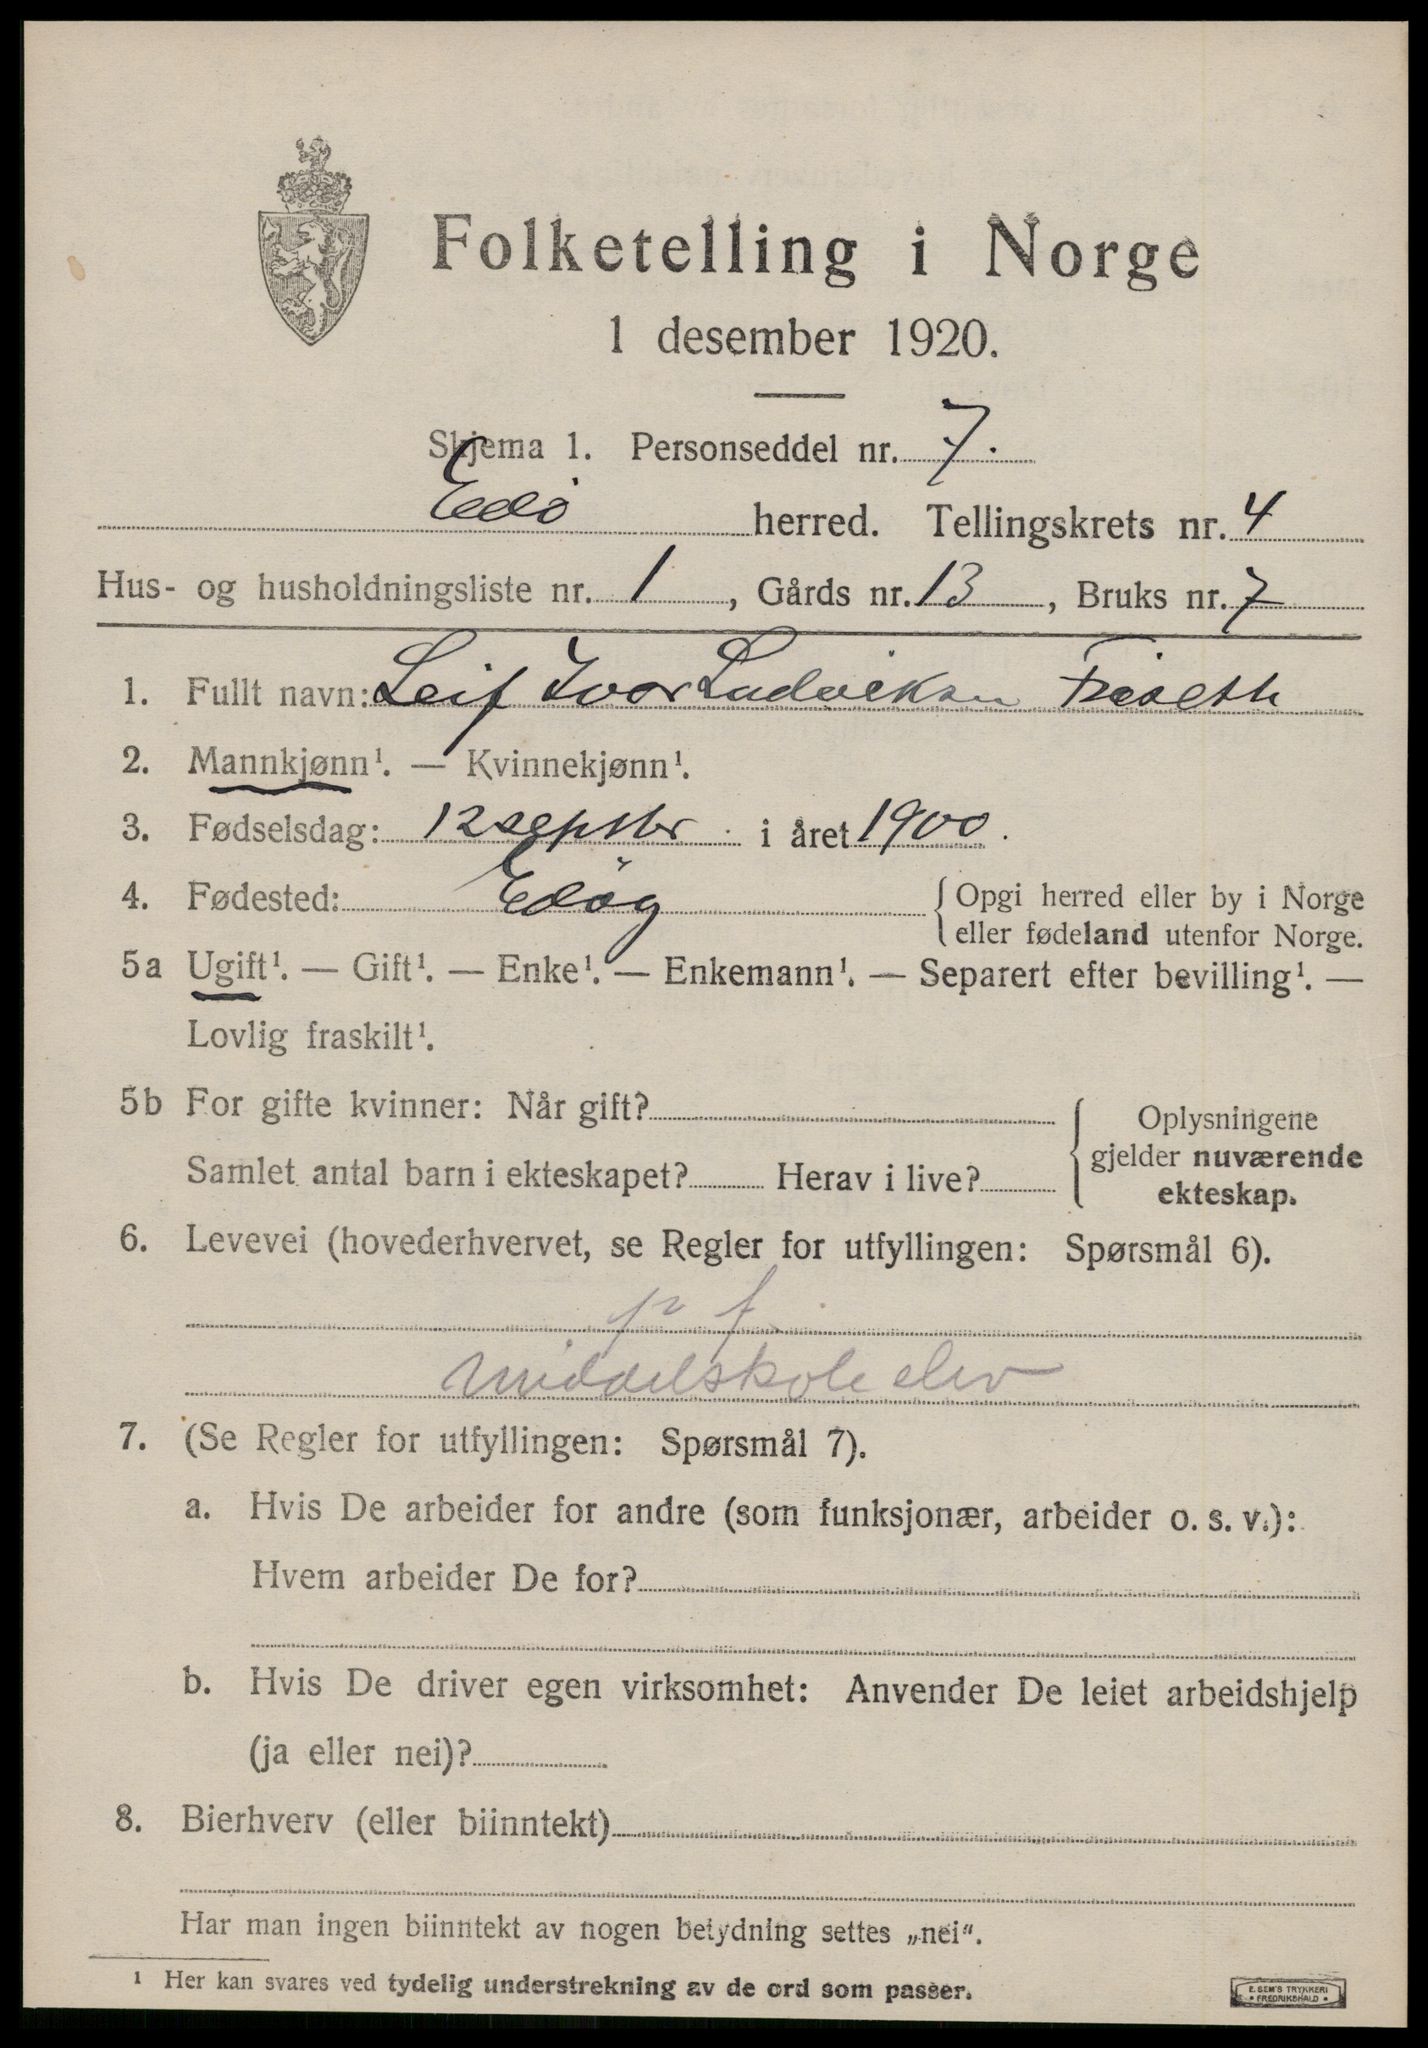 Folketelling i Norge
1 desember 1920.
Skjema 1. Personseddel nr. 7.
Edø herred. Tellingskrets nr. 4
Hus- og husholdningsliste nr. 1, Gårds nr. 13, Bruks nr. 7
1. Fullt navn: Leif Ivar Ludviksen
2. Mannkjønn¹. — Kvinnekjønn¹.
3. Fødselsdag: 12 septbr. i året 1900.
4. Fødested: Edøy { Opgi herred eller by i Norge
eller fødeland utenfor Norge.
5a Ugift¹. — Gift¹. — Enke¹. — Enkemann¹. — Separert efter bevilling¹. —
Lovlig fraskilt¹.
5b For gifte kvinner: Når gift? { Oplysningene
gjelder nuværende
Samlet antal barn i ekteskapet? Herav i live? ekteskap.
6. Levevei (hovederhvervet, se Regler for utfyllingen: Spørsmål 6).
p f
Middelskole elev
7. (Se Regler for utfyllingen: Spørsmål 7).
a. Hvis De arbeider for andre (som funksjonær, arbeider o. s. v.):
Hvem arbeider De for?
b. Hvis De driver egen virksomhet: Anvender De leiet arbeidshjelp
(ja eller nei)?
8. Bierhverv (eller biinntekt)
Har man ingen biinntekt av nogen betydning settes „nei“.
¹ Her kan svares ved tydelig understrekning av de ord som passer.
E. SEM'S TRYKKERI
• FREDRIKSHALD •